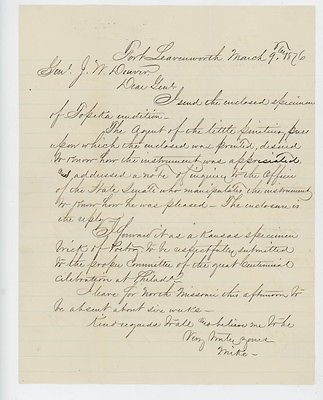 Fort Leavenworth March 9th 1876
Genl. J. W. Denver
Dear Genl
I send the enclosed specimen
of Topeka erudition.
The Agent of the little Printing press
upon which the enclosed was printed, desired
to know how the instrument was appreciated
addressed a note of inquiry to the Office
of the State Senate who manipulates the instrument
to know how he was pleased - The enclosure is
the reply.
I forward it as a Kansas specimen
of Poetry to be respectfully submitted
to the proper Committee of the great Centennial
Celebration at Philada.
I leave for North Missouri this afternoon to
be absent about six weeks -
Kind regards to all believe me to be
Very truly yours
Mike -